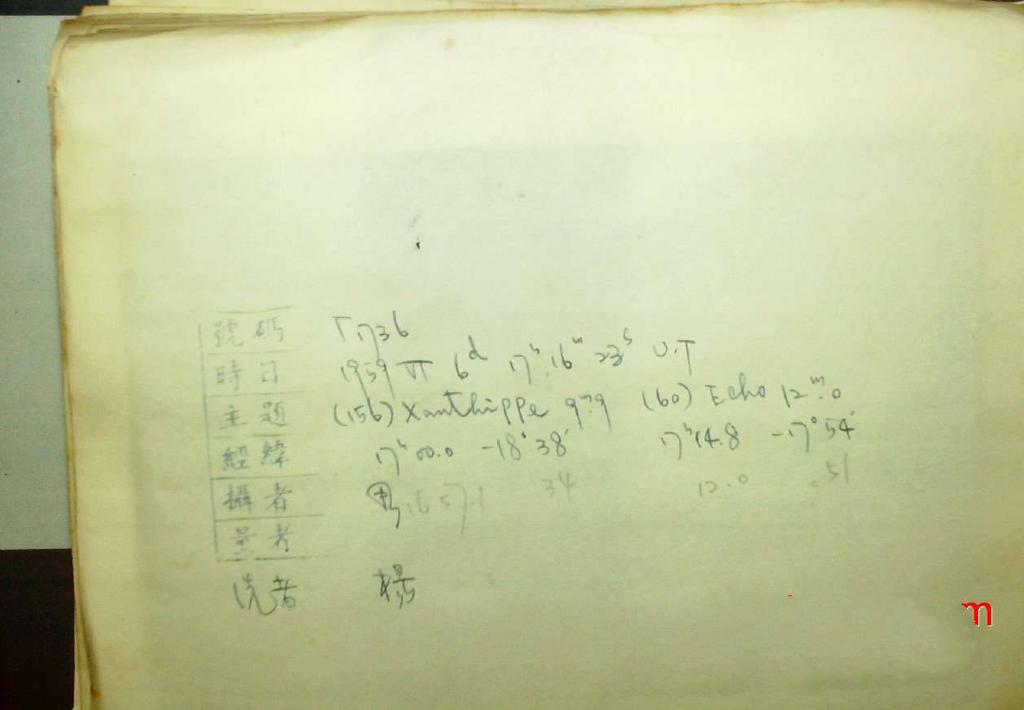 號碼 T1736
時日 1959 VI 6d 17h 16m 23s U.T
主題 (156) Xanthippe 9m.9 (60) Echo 12m.0
經緯 17h00.0 -18°38' 17h14.8 -17°54'
攝者 16 57.1 34 12.0 .51
量者
洗者 楊
m